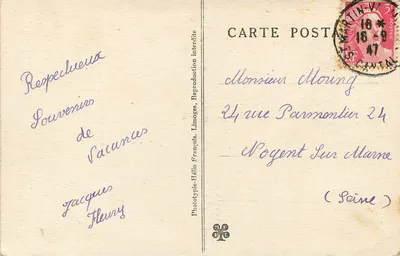 Respectueux
Souvenirs
de
Vacances
Jacques
Fleury
Phototypie-Hélio François, Limoges, Reproduction interdite
CARTE POSTA
ST MARTIN
16 *
16-9
47
CANTAL
Monsieur Moung
24 rue Parmentier 24
Nogent Sur Marne
(Seine)